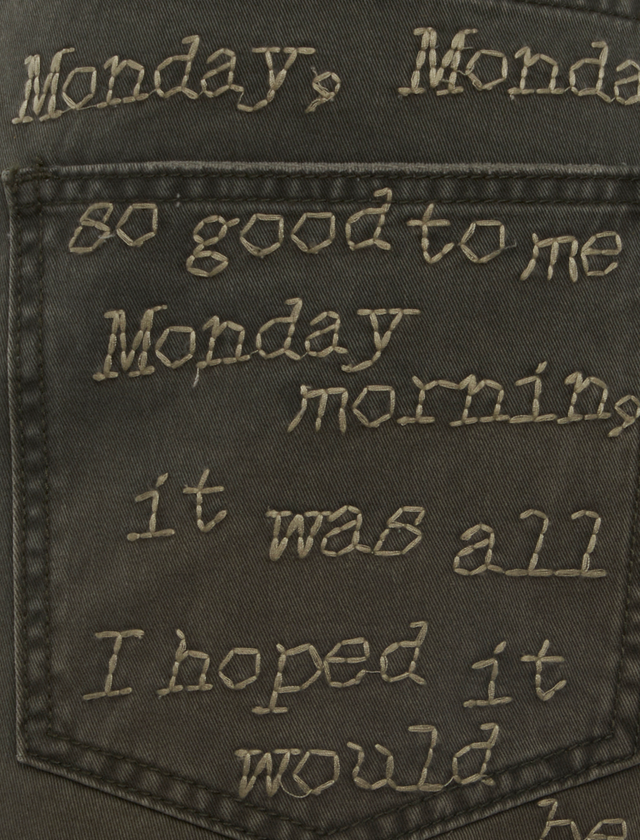 Monday, Monda
so good to me
Monday
morning
it was all
I hoped it
would
be